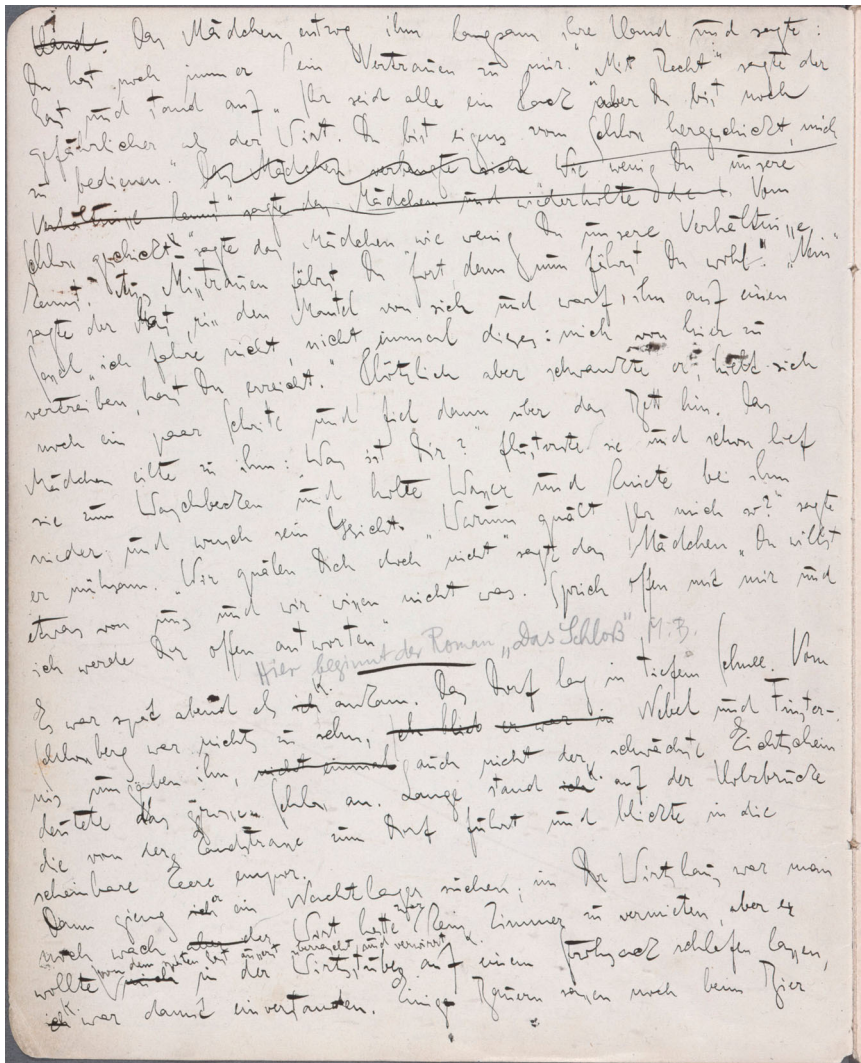 Hand. Das Mädchen entzog ihm langsam ihre Hand und sagte:
Du hast noch immer kein Vertrauen zu mir." "Mit Recht" sagte der
Gast und stand auf „Ihr seid alle ein Pack aber Du bist noch
gefährlicher als der Wirt. Du bist eigens vom Schloss hergeschickt, mich
zu bedienen." Das Mädchen sich Wie wenig Du unsere
Verhältnisse kennst" sagte das Mädchen und wiederholte Vom
Schloss geschickt" sagte das Mädchen wie wenig Du unsere Verhältnisse
kennst. Aus Misstrauen fährst Du fort, denn nun fährst Du wohl." "Nein"
sagte der Gast, riss den Mantel von sich und warf ihn auf einen
Sessel „ich fahre nicht, nicht einmal dieses: mich von hier zu
vertreiben, hast Du erreicht." Plötzlich aber schwankte er, hielt sich
noch ein paar Schritte und fiel dann über das Bett hin. Das
Mädchen eilte zu ihm: Was ist Dir?" flüsterte sie und schon lief
sie zum Waschbecken und holte Wasser und kniete bei ihm
nieder und wusch sein Gesicht. „Warum quält Ihr mich so?" sagte
er mühsam. „Wir quälen Dich doch nicht" sagte das Mädchen „Du willst
etwas von uns und wir wissen nicht was. Sprich offen mit mir und
ich werde Dir offen antworten"
Hier beginnt der Roman „Das Schloß" M.B.
Es war spät abend als ich K. ankam. Das Dorf lag in tiefem Schnee. Vom
Schlossberg war nichts zu sehn, ich blieb er war in Nebel und Finster-
nis umgaben ihn, nicht einmal auch nicht der schwächste Lichtschein
deutete das grosse Schloss an. Lange stand ich K. auf der Holzbrücke
die von der Landstrasse zum Dorf führt und blickte in die
scheinbare Leere empor.
Dann gieng ich er ein Nachtlager suchen; im Wirtshaus war man
noch wach, aber der Wirt hatte zwar kein Zimmer zu vermieten, aber er
von dem späten Gast äusserst überrascht und verwirrt K.
wollte mich in der Wirtsstube auf einem Strohsack schlafen lassen,
ich K. war damit einverstanden. Einige Bauern sassen noch beim Bier